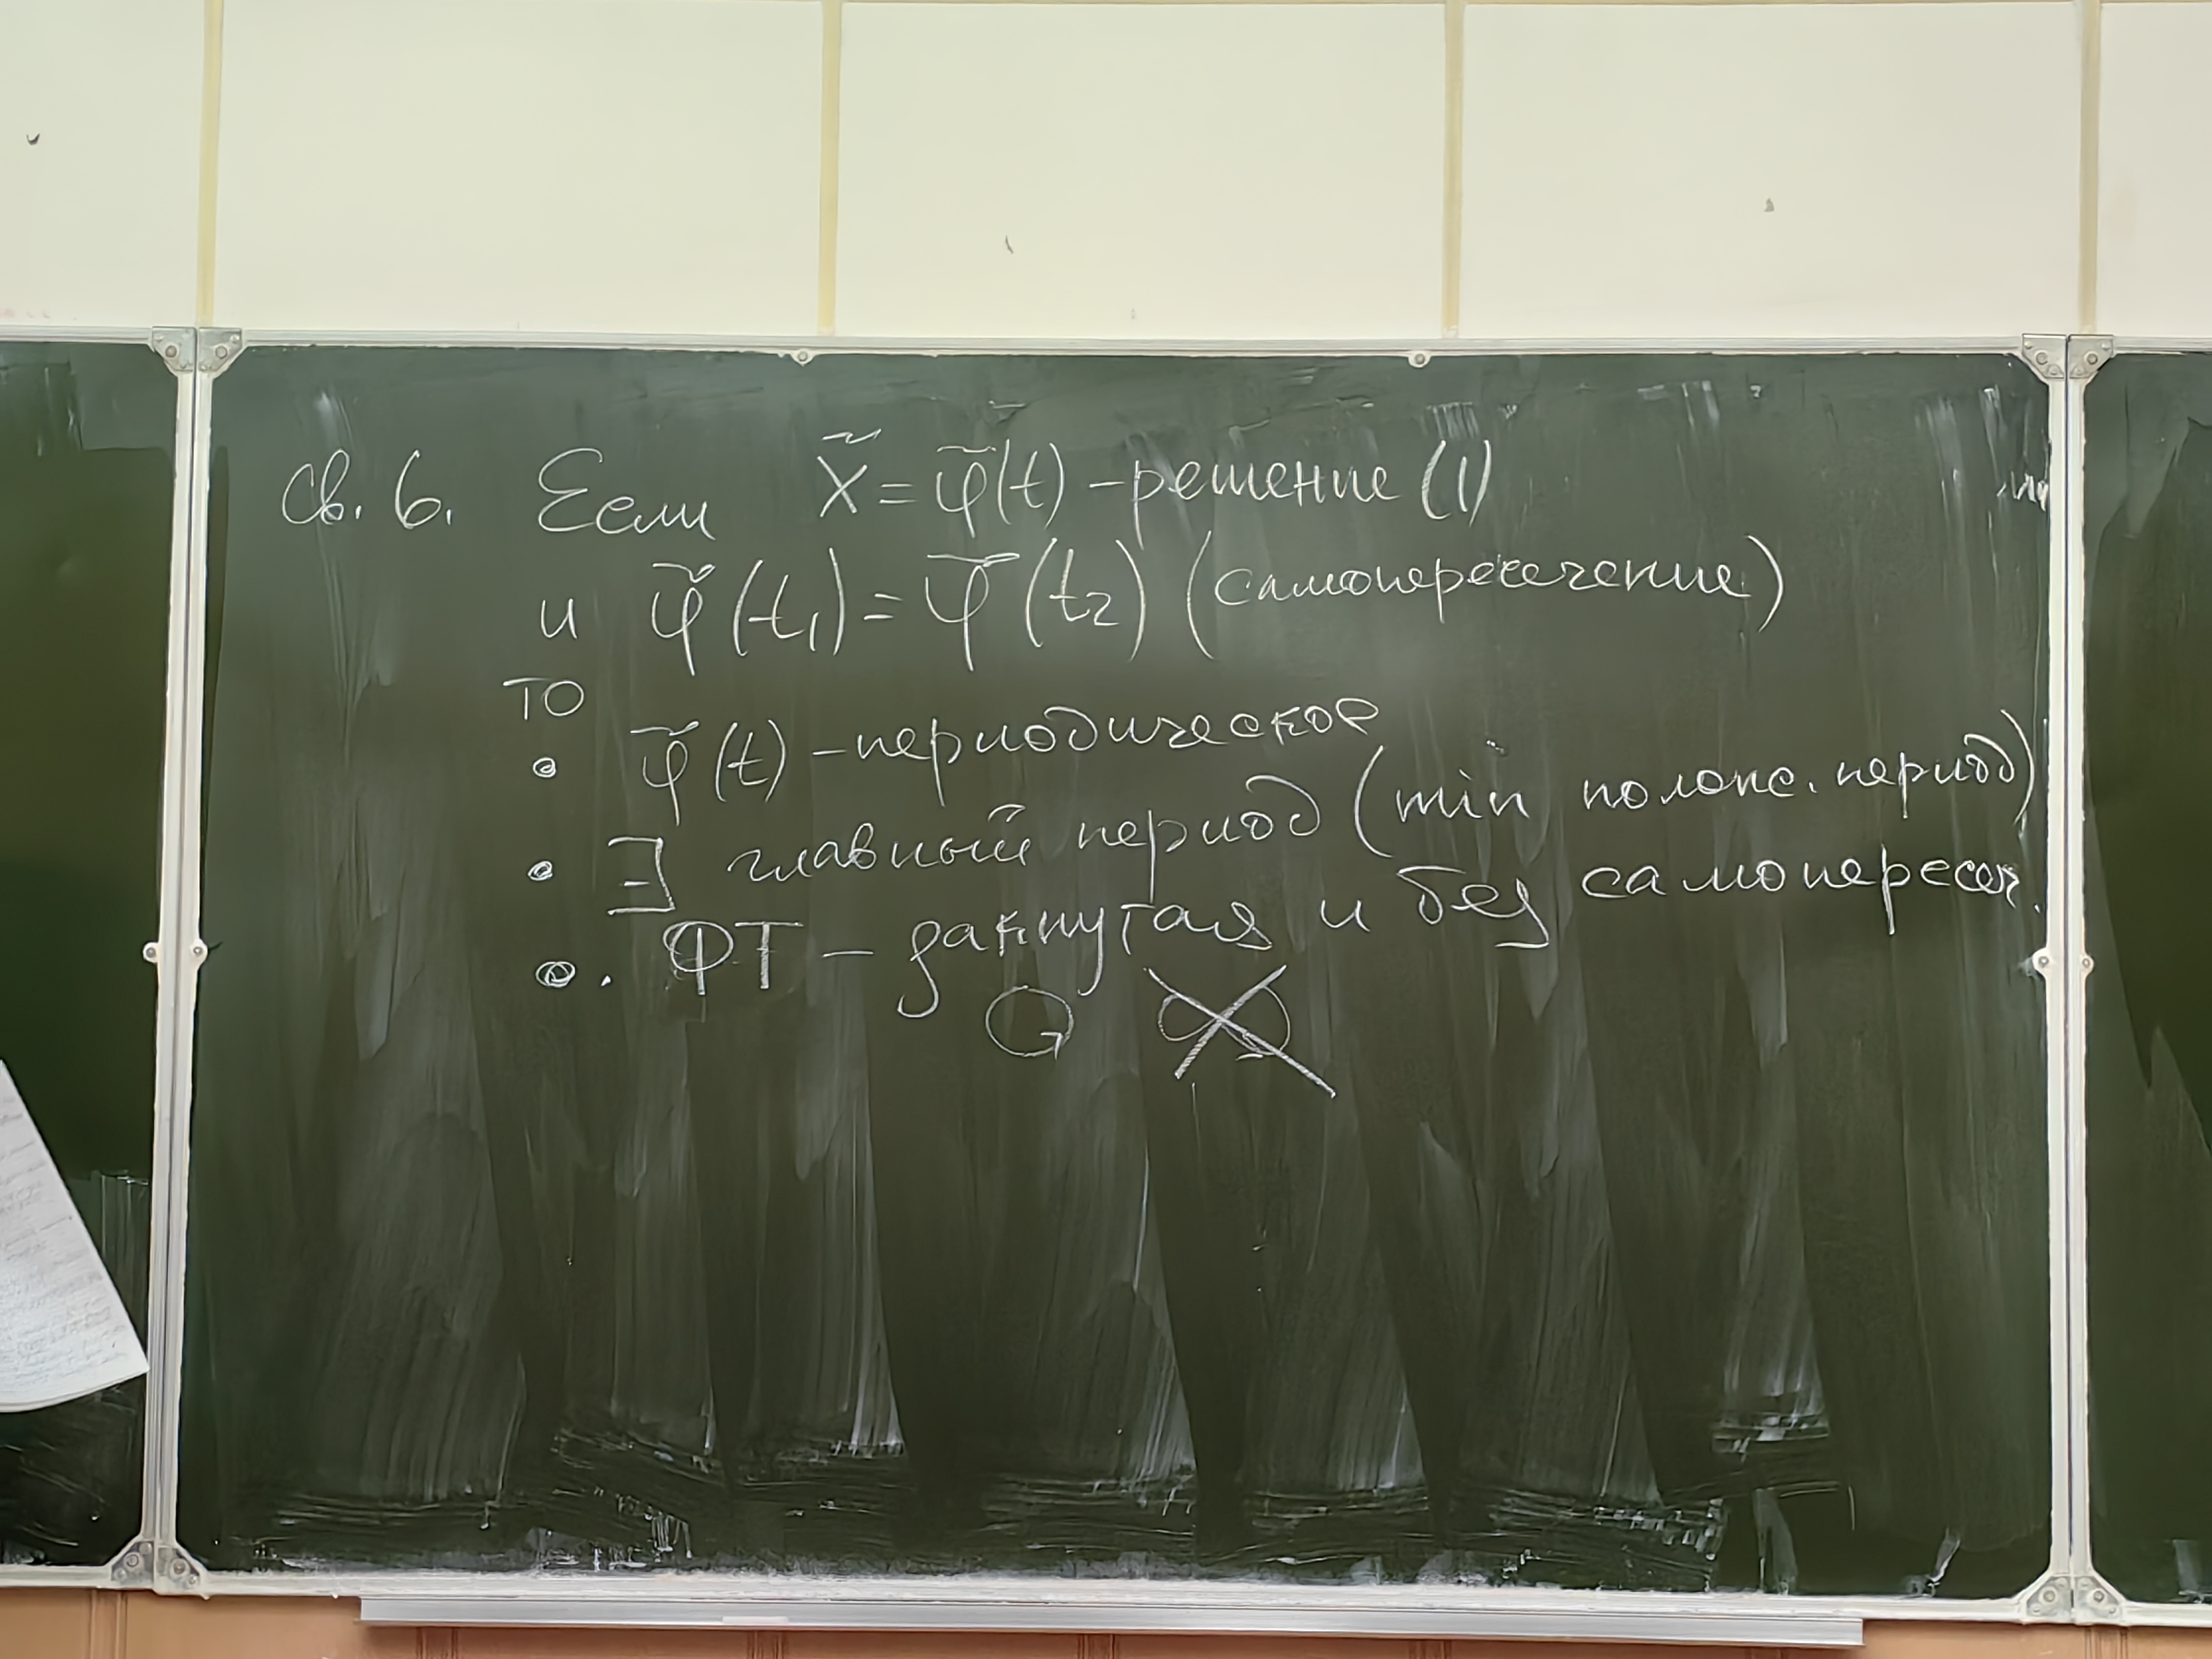 Св. 6. Если x̃ = φ̃(t) – решение (1)
и φ̃(t₁) = φ̃(t₂) (самопересечение)
то
• φ̃(t) – периодическое
• ∃ главный период (min полож. период)
• . ФТ – замкнутая и без самопересеч.